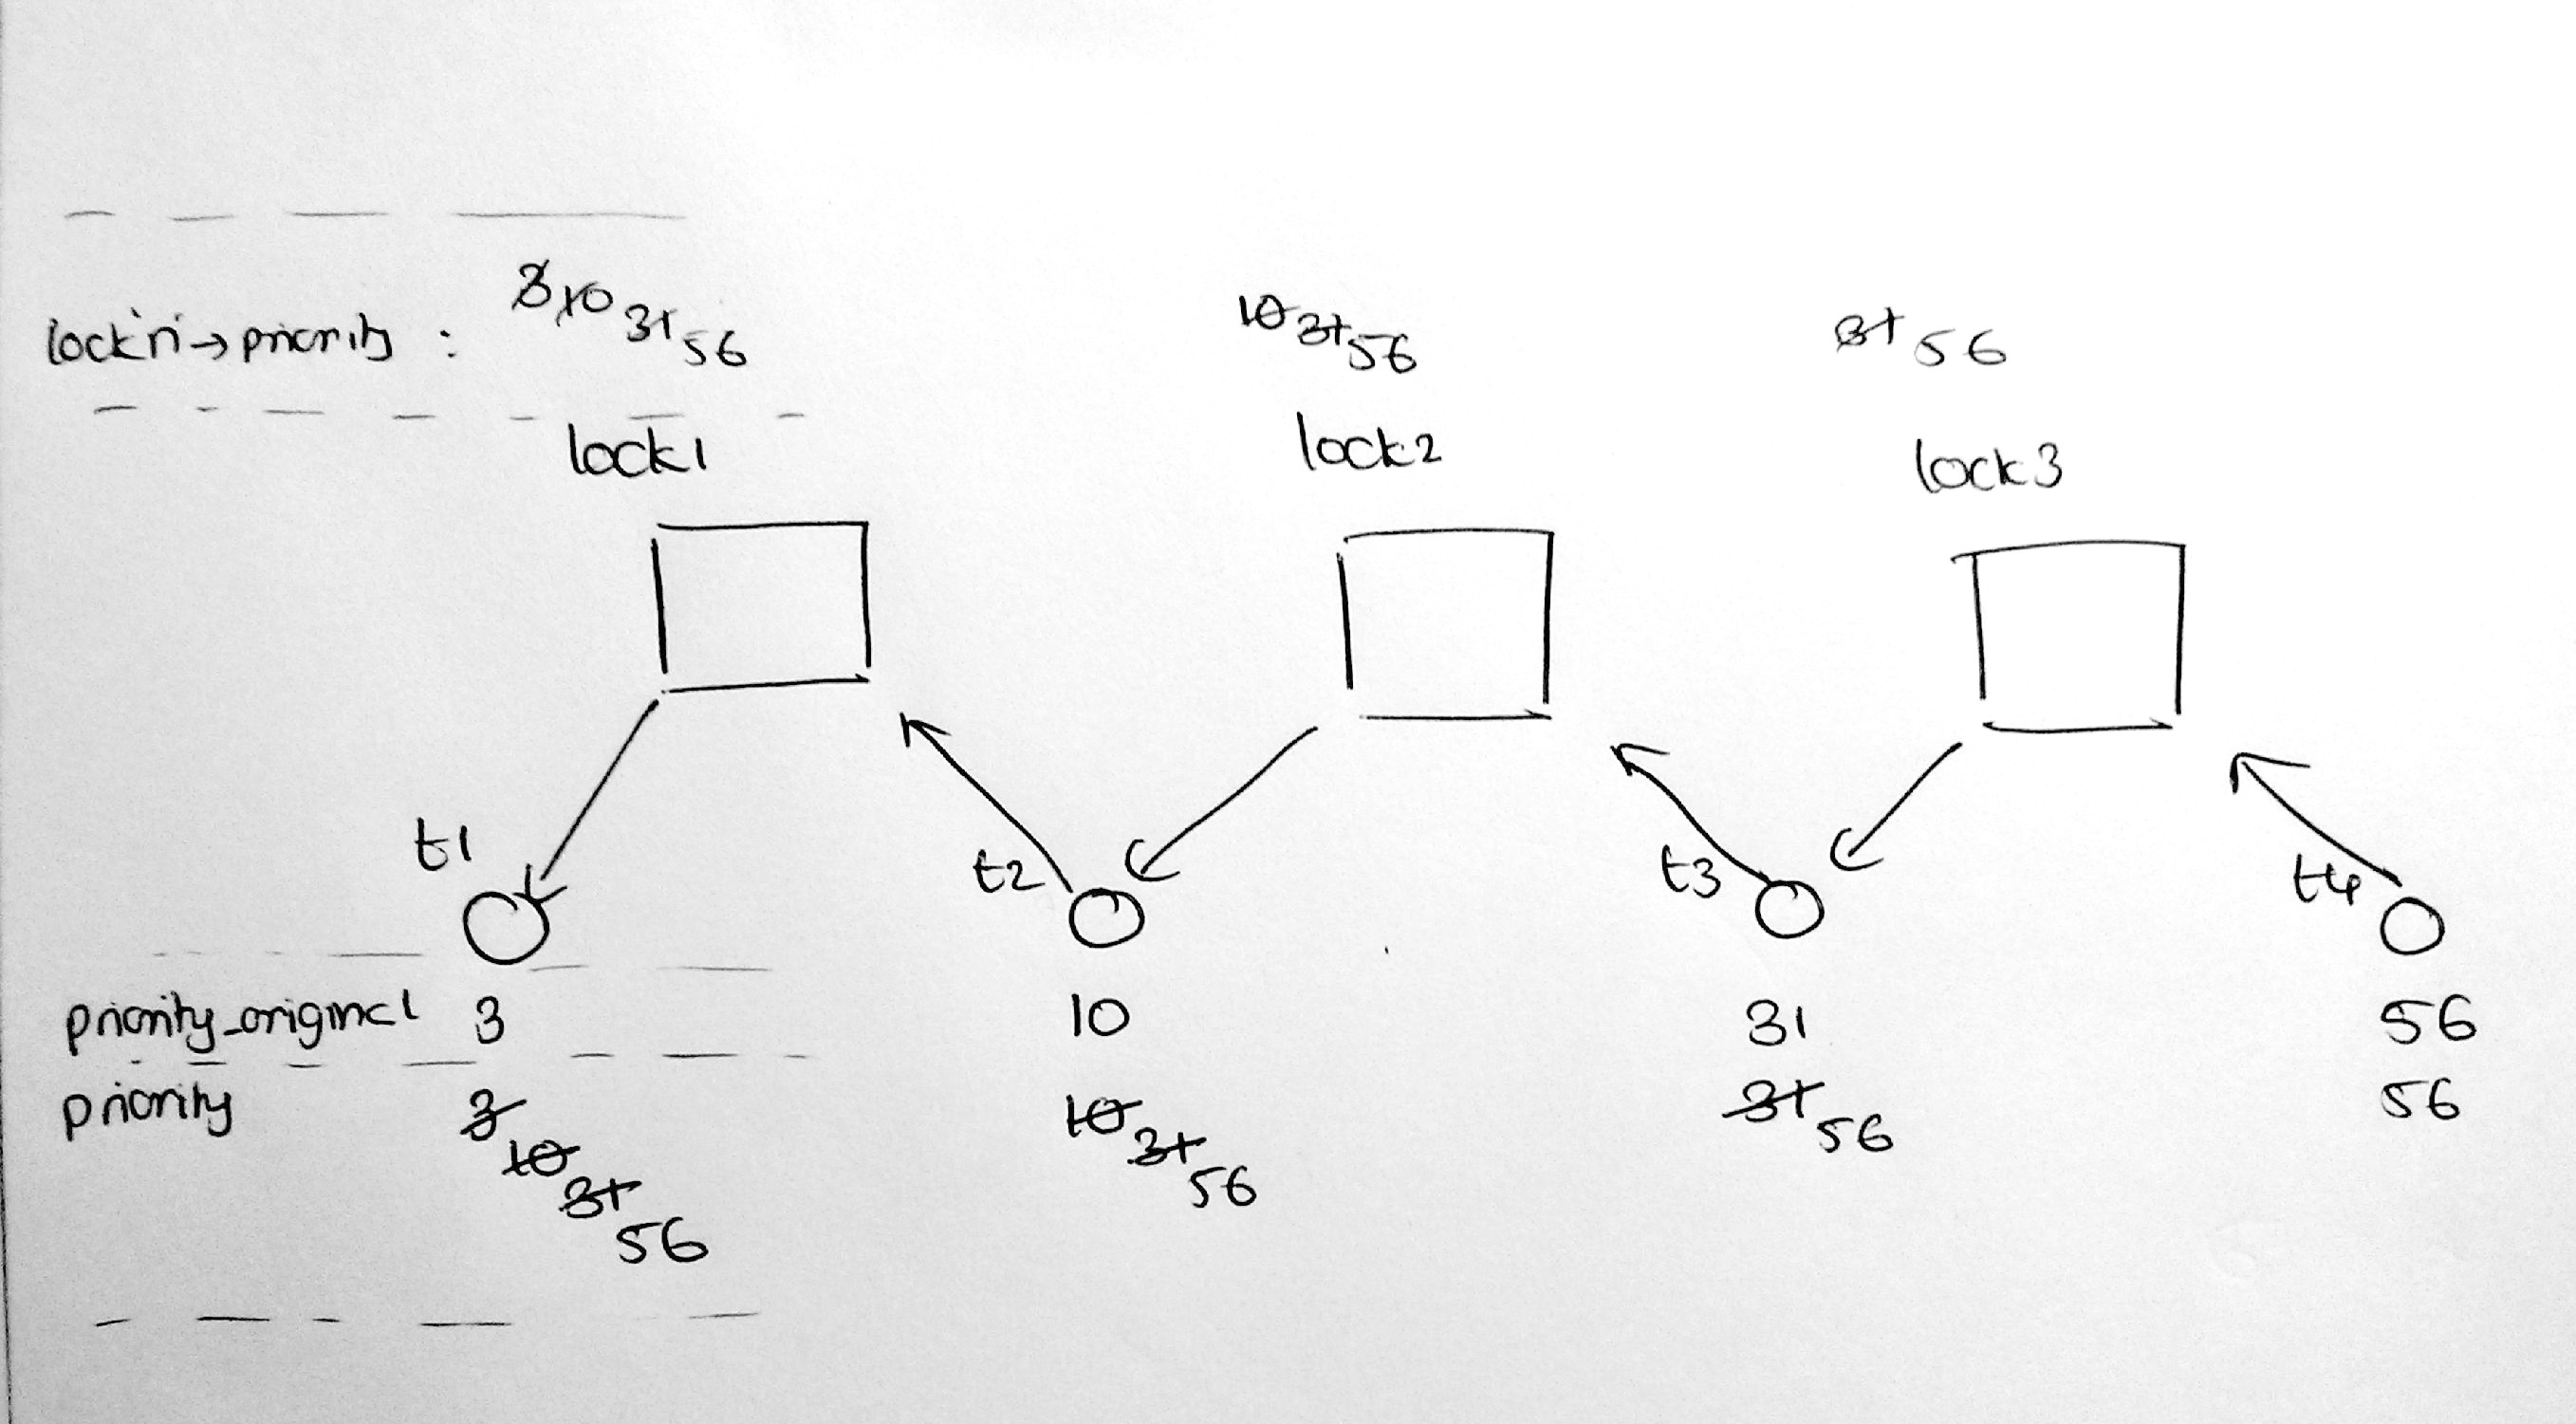 lock'n'→priority : 3 10 31 56 10 31 56 31 56
lock1 lock2 lock3
t1 t2 t3 t4
priority_original 3 10 31 56
priority 3 10 31 56 10 31 56 31 56 56